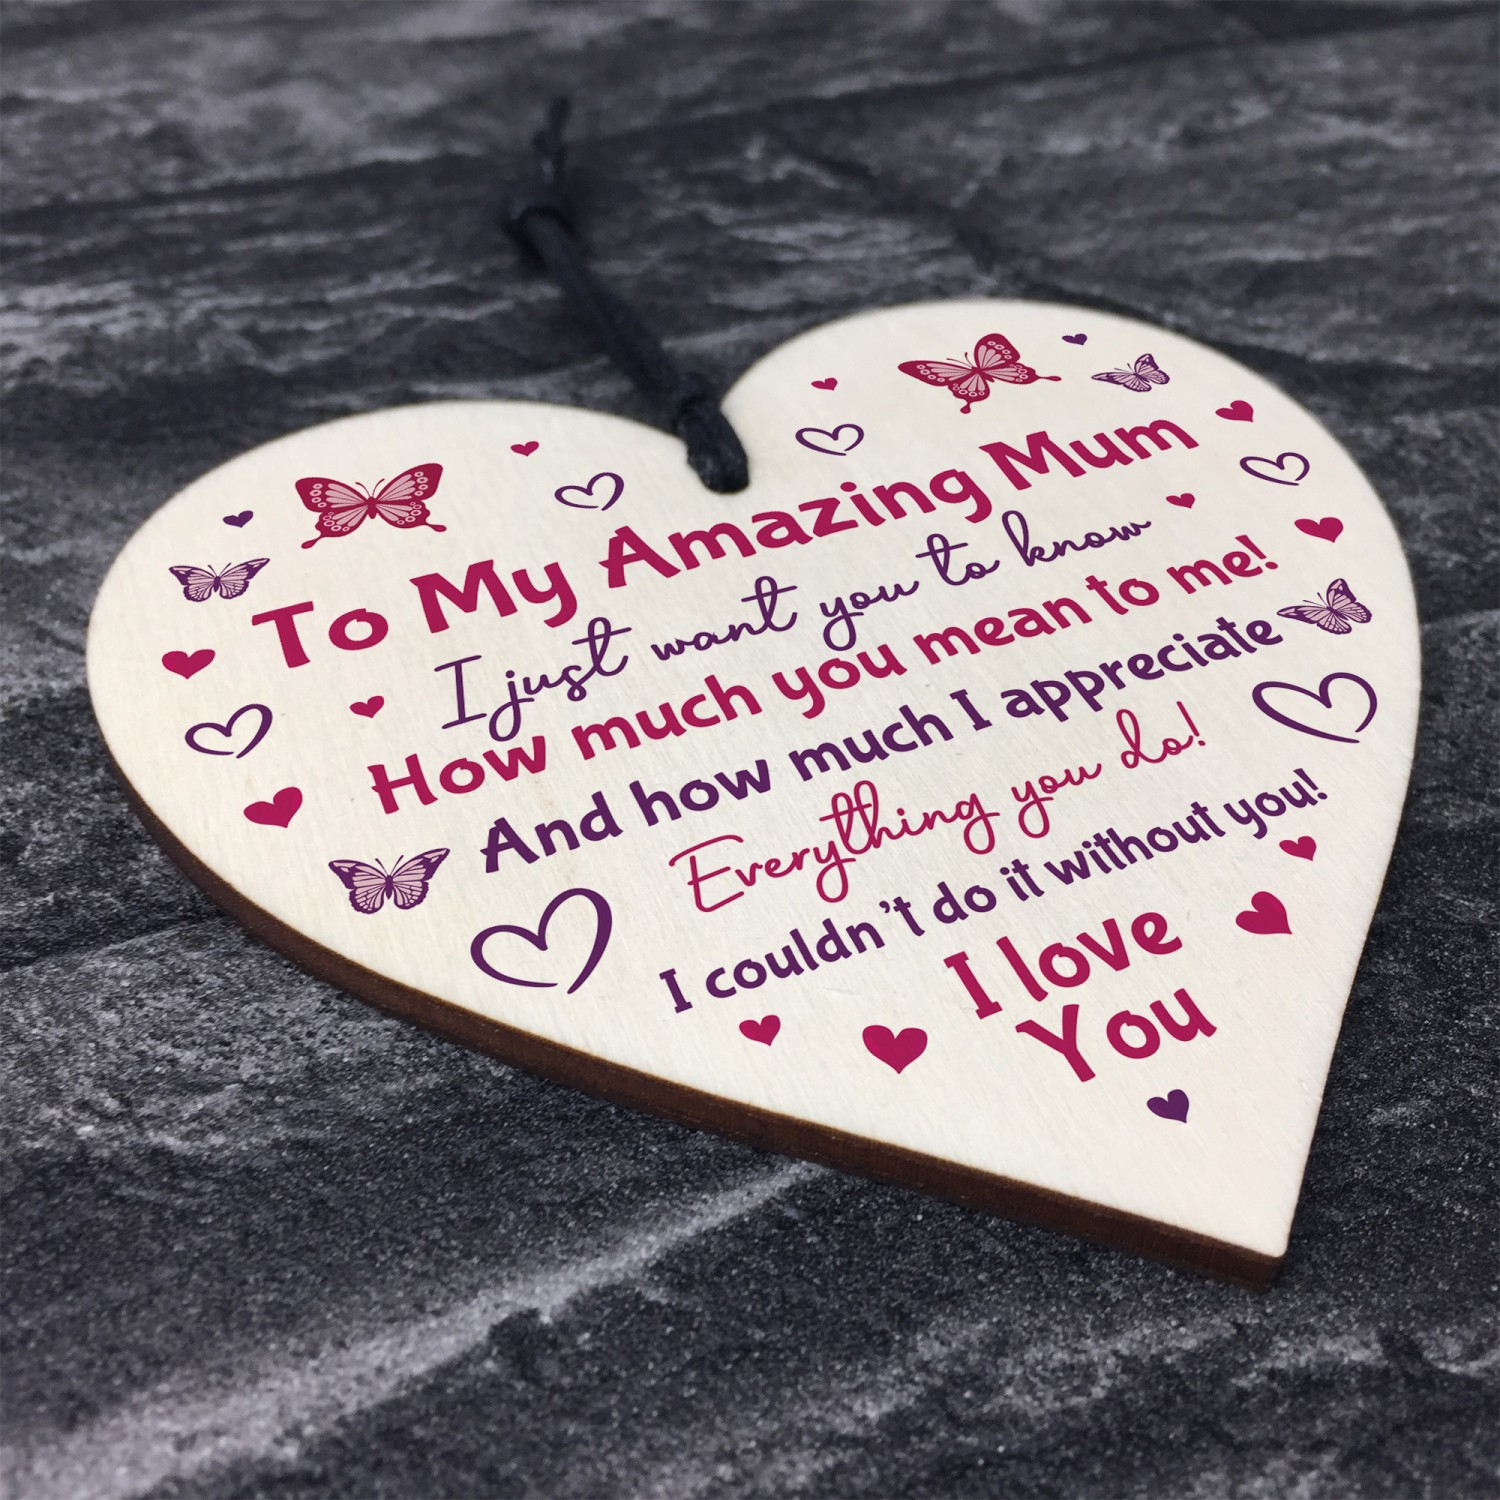 To My Amazing Mum
I just want you to know
How much you mean to me!
And how much I appreciate
Everything you do!
I couldn't do it without you!
I love
You